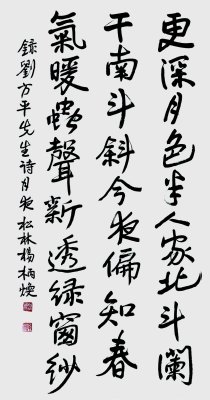 更深月色半人家北斗闌
干南斗斜今夜偏知春
氣暖蟲聲新透绿窗紗
錄劉方平先生诗月夜 松林楊柄煥